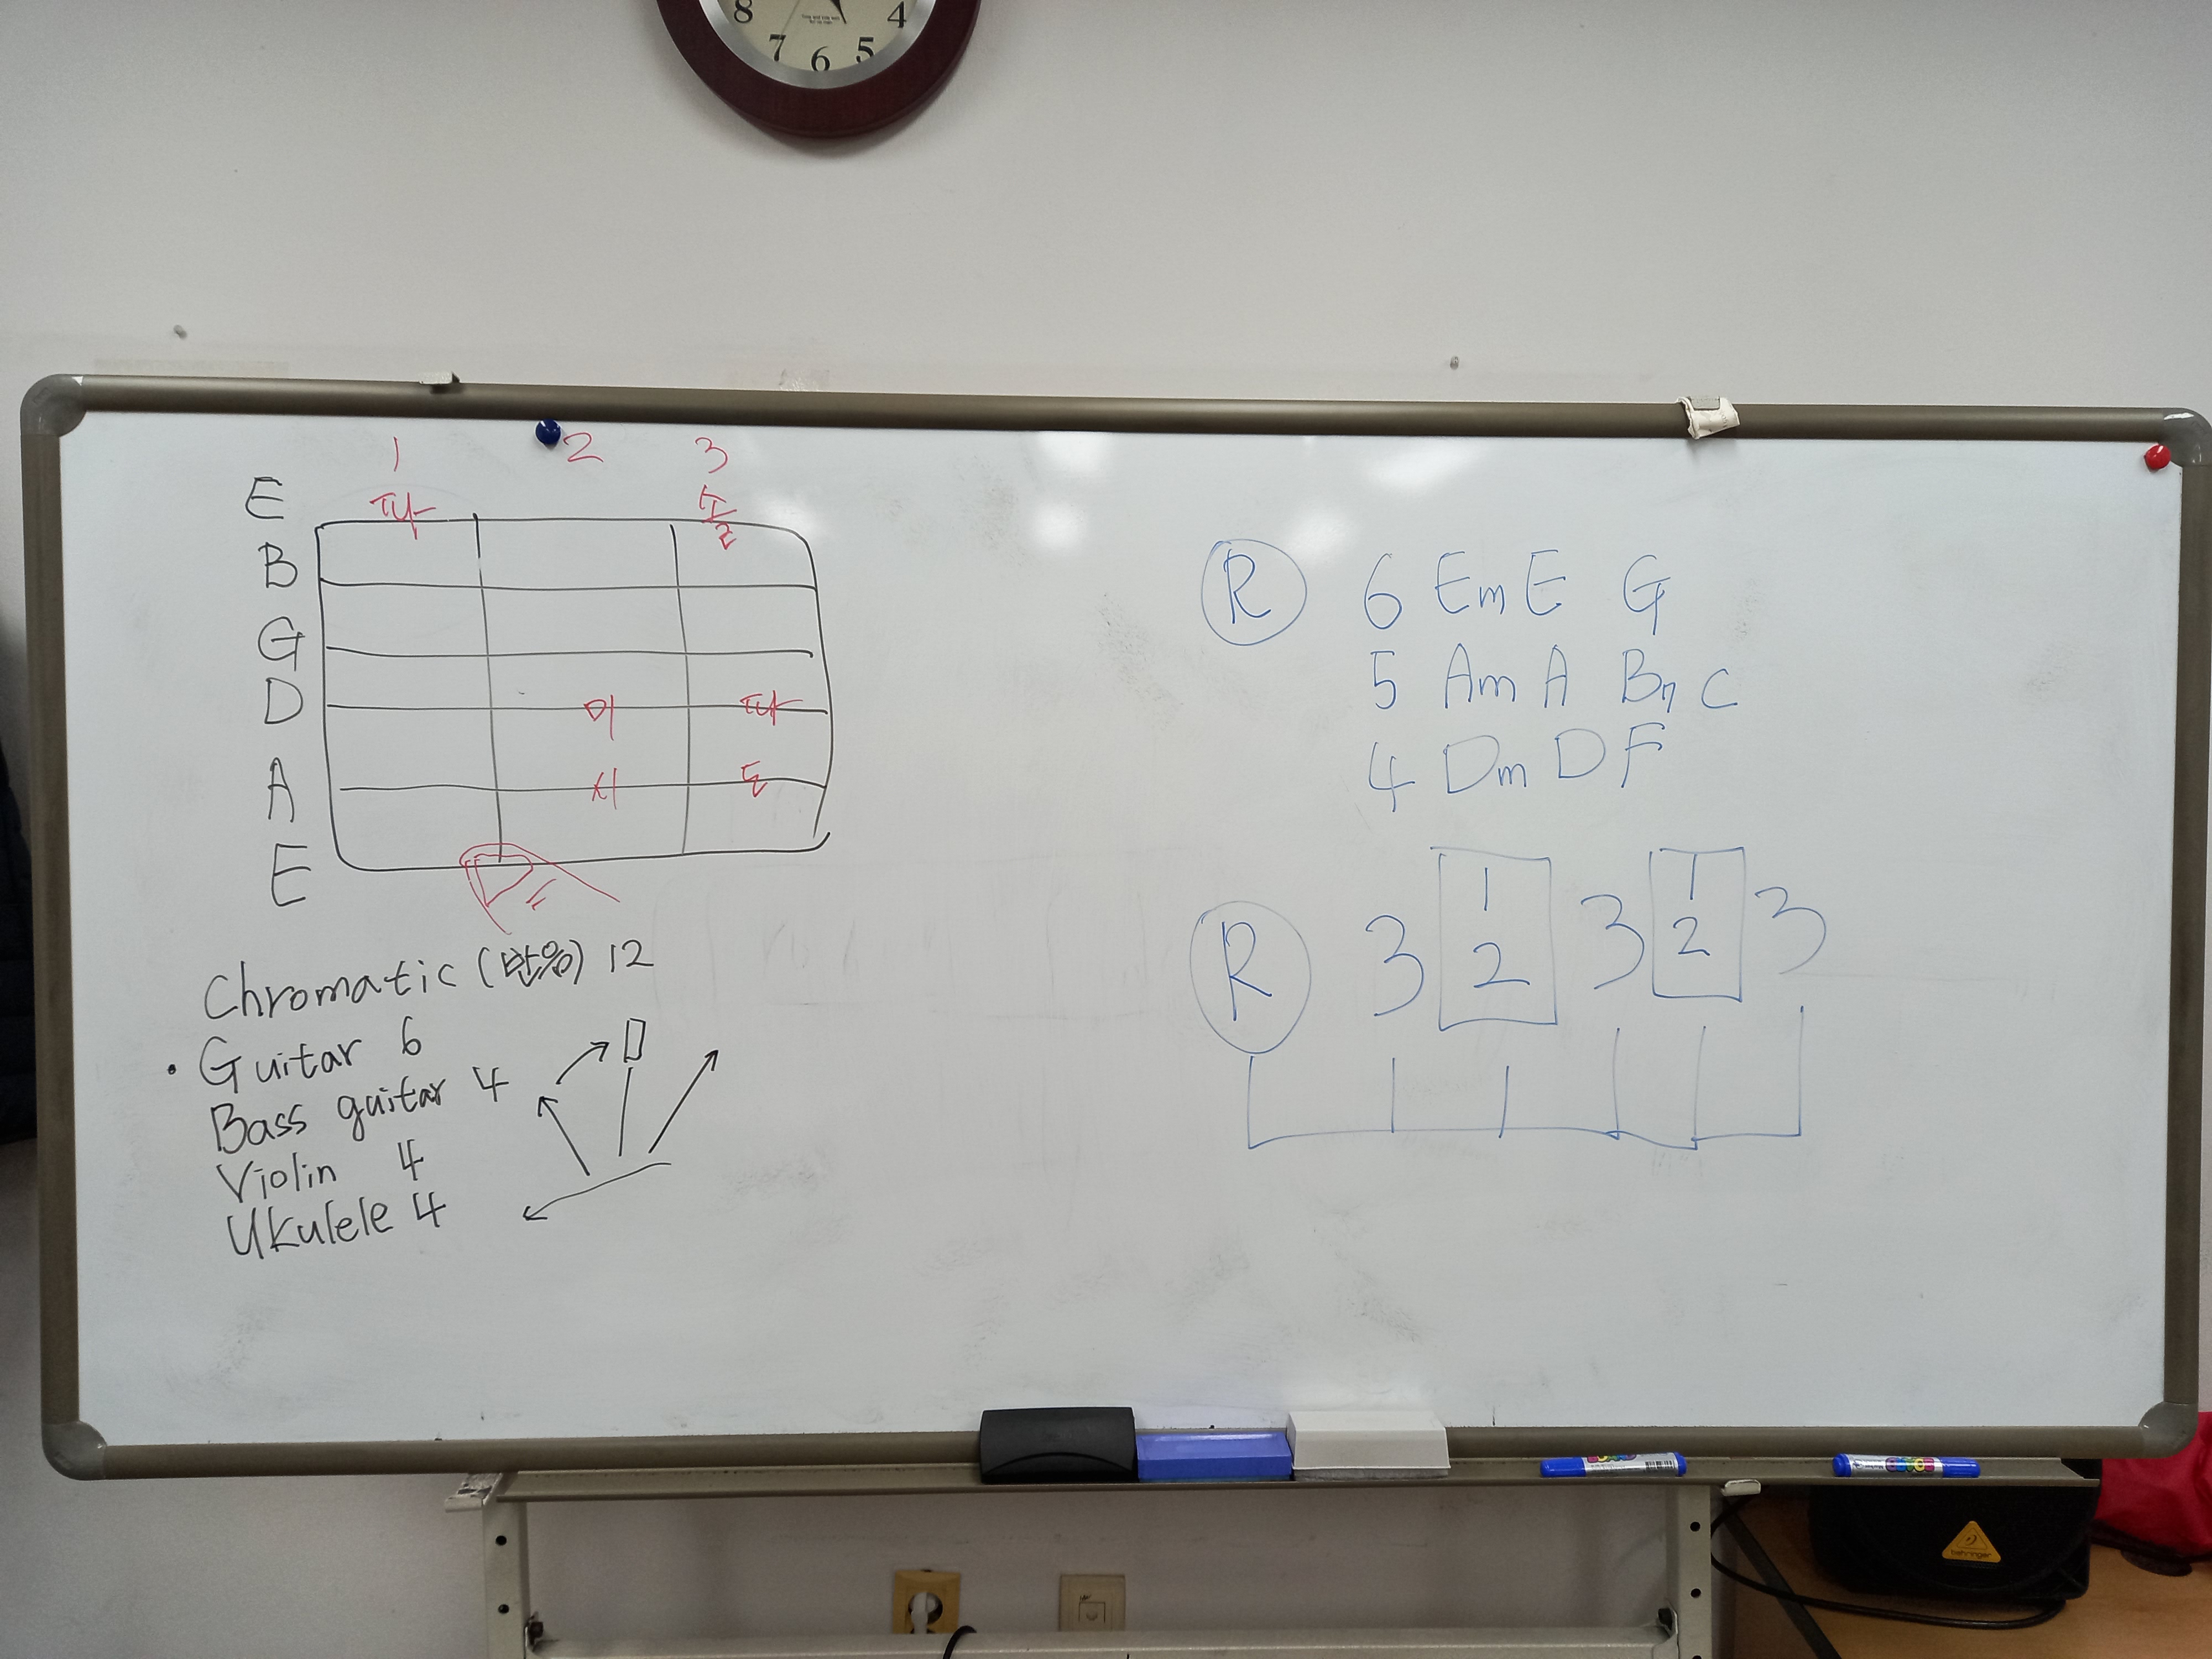 8 7 6 5 4
1 2 3
E 파 솔
B
G
D 미 파
A 시 도
E
Chromatic (반음) 12
· Guitar 6
Bass guitar 4
Violin 4
Ukulele 4
R 6 Em E G
5 Am A B7 C
4 Dm D F
R 3 1 2 3 1 2 3
behringer